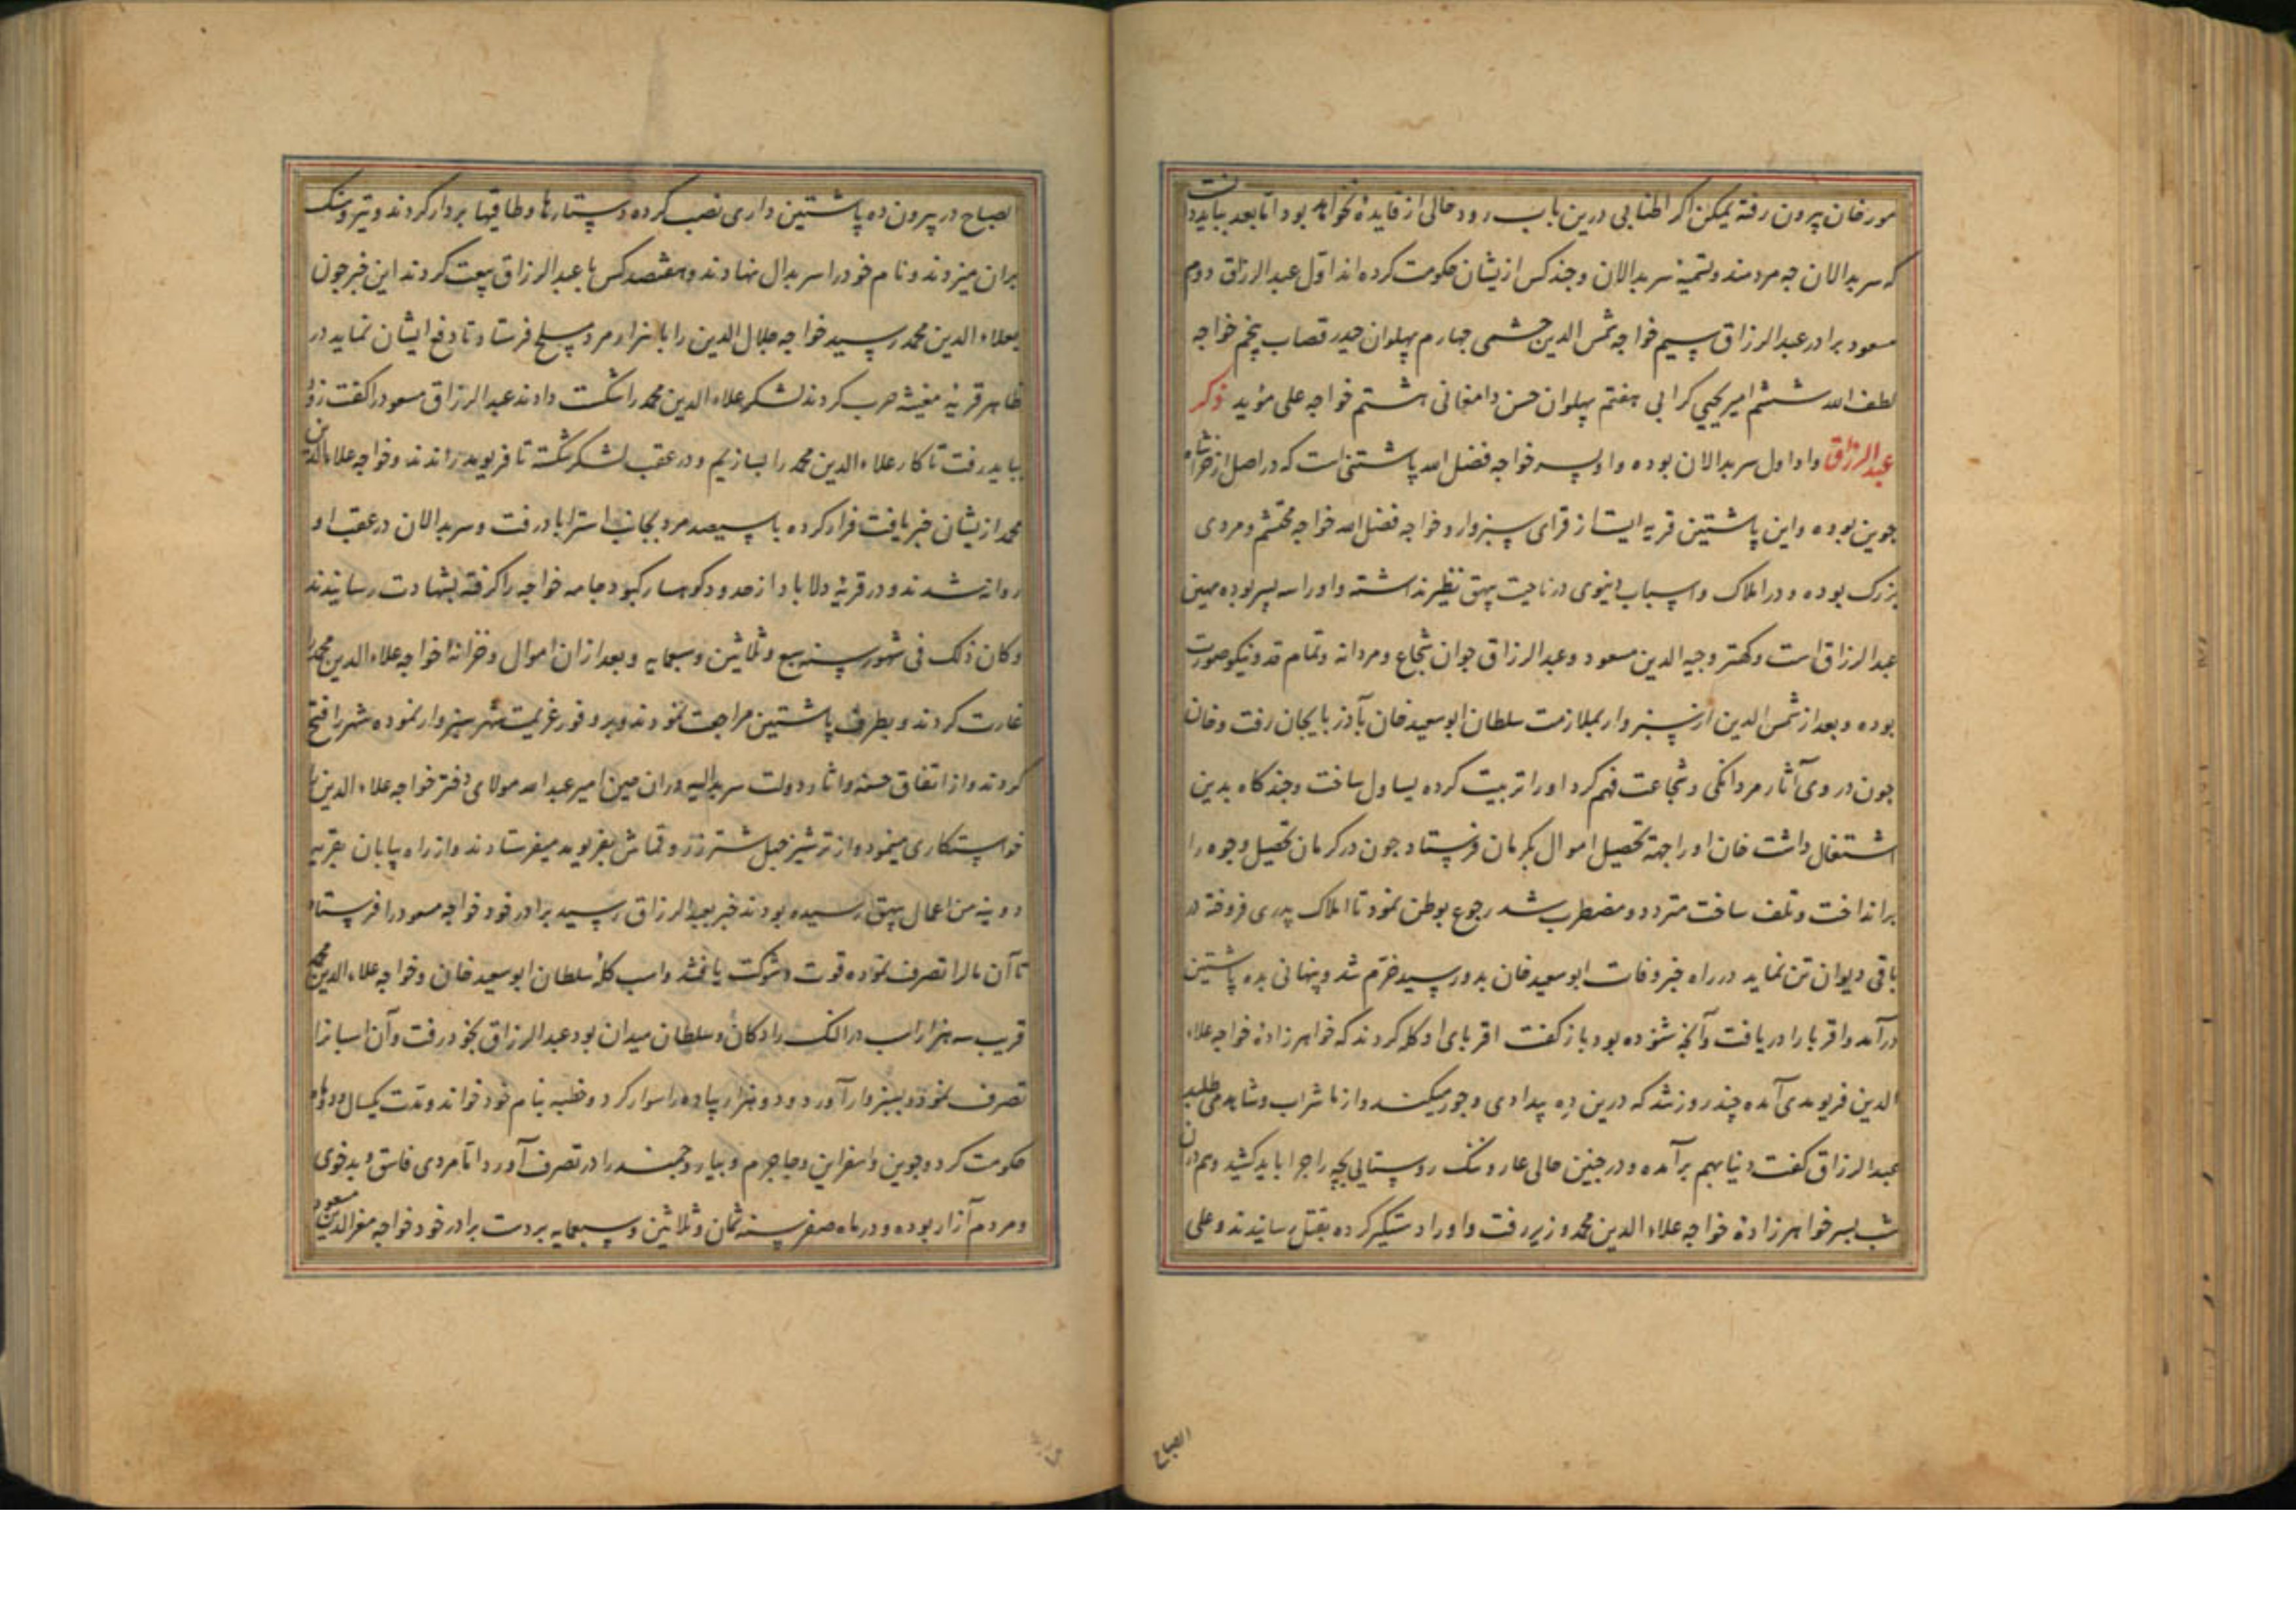 مورخان بیرون رفته یمکن اکر اطنابی درین باب رود خالی از فایدۀ نخواهد بود اما بعد بباید دانست
که سربدالان چه مردمند و تسمیۀ سربدالان و چند کس ازیشان حکومت کرده‌اند اول عبدالرزاق دوم
مسعود برادر عبدالرزاق سیم خواجه شمس الدین چشمی جهارم پهلوان حیدر قصاب پنجم خواجه
لطف الله ششم امیر یحیی کرابی هفتم پهلوان حسن دامغانی هشتم خواجه علی مؤید ذکر
عبدالرزاق و او اول سربدالان بوده و او پسر خواجه فضل الله پاشتنی است که در اصل از
جوین بوده و این پاشتین قریه ایست از قرای سبزوار و خواجه فضل الله خواجه محتشم و مردی
بزرک بوده و در املاک و اسباب دنیوی در ناحیت بیهق نظیر نداشته و او را سه پسر بوده مهین
عبدالرزاق است و کهتر وجیه الدین مسعود و عبدالرزاق جوان شجاع و مردانه و تمام قد و نیکو صورت
بوده و بعد از شمس الدین از سبزوار بملازمت سلطان ابوسعید خان بآذربایجان رفت و خان
چون در وی آثار مردانکی و شجاعت فهم کرد او را تربیت کرده یساول ساخت و چندکاه بدین
اشتغال داشت خان او را جهة تحصیل اموال بکرمان فرستاد جون در کرمان تحصیل وجوه را
برانداخت و تلف ساخت متردد و مضطرب شد رجوع بوطن نمود تا املاک پدری فروخته در
باقی دیوان تن نماید در راه خبر وفات ابوسعید خان بدو رسید خرم شد و پنهانی بده پاشتین
درآمد و اقربا را دریافت و آنچه شنوده بود بازکفت اقربای او کله کردند که خواهرزادۀ خواجه علاء
الدین فریومدی آمده چند روز شد که درین ده بیدادی و جور میکند و از ما شراب و شاهد می طلبد
عبدالرزاق کفت دنیا بهم برآمده و در چنین حالی عار و ننک روستایی بچه را چرا باید کشید و هم دران
شب بسر خواهرزادۀ خواجه علاء الدین محمد وزیر رفت و او را دستکیر کرده بقتل رسانیدند و علی
الصباح
لصباح در بیرون ده پاشتین داری نصب کرده دستارها و طاقیها بر دار کردند و تیر و سنک
بران میزدند و نام خود را سربدال نهادند و هفتصد کس با عبدالرزاق بیعت کردند این خبر جون
بعلاء الدین محمد رسید خواجه جلال الدین را با هزار مرد مسلح فرستاد تا دفع ایشان نماید در
ظاهر قریۀ مغیشه حرب کردند لشکر علاء الدین محمد را شکست دادند عبدالرزاق مسعود را کفت زود
بباید رفت تا کار علاء الدین محمد را بسازیم و در عقب لشکر شکسته تا فریومد راندند و خواجه علاء الدین
محمد ازیشان خبر یافت فرار کرده با سیصد مرد بجانب استراباد رفت و سربدالان در عقب او
روانه شدند و در قریۀ دلاباد از حدود کوهسار کبود جامه خواجه را کرفته بشهادت رسانیدند
و کان ذلک فی شهور سنه سبع و ثلاثین و سبعمایه و بعد ازان اموال و خزانۀ خواجه علاء الدین محمد را
غارت کردند و بطرف پاشتین مراجعت نمودند و عزیمت شهر سبزوار نموده شهر را فتح
کردند و از اتفاق حسنه و اثار دولت سربدالیه دران حین امیر عبدالله مولای دختر خواجه علاء الدین را
خواستکاری مینمود و از ترشیز چهل شتر زر و قماش بفریومد میفرستادند و از راه بیابان بقریه
دوینه من اعمال بیهق رسیده بودند خبر بعبدالرزاق رسید برادر خود خواجه مسعود را فرستاد
تا آن مال را تصرف نموده قوت و شوکت یافتند و اسب کلۀ سلطان ابوسعید خان و خواجه علاء الدین محمد
قریب سه هزار اسب در النک رادکان و سلطان میدان بود عبدالرزاق بخود رفت و آن اسبانرا
تصرف نمود و بسبزوار آورد و دو هزار پیاده را سوار کرد و خطبه بنام خود خواند و مدت یکسال و دو ماه
حکومت کرد و جوین و اسفراین و جاجرم و بیار و خجند را در تصرف آورد اما مردی فاسق و بدخوی
و مردم آزار بوده و در ماه صفر سنه ثمان و ثلاثین و سبعمایه بر دست برادر خود خواجه الدین مسعود